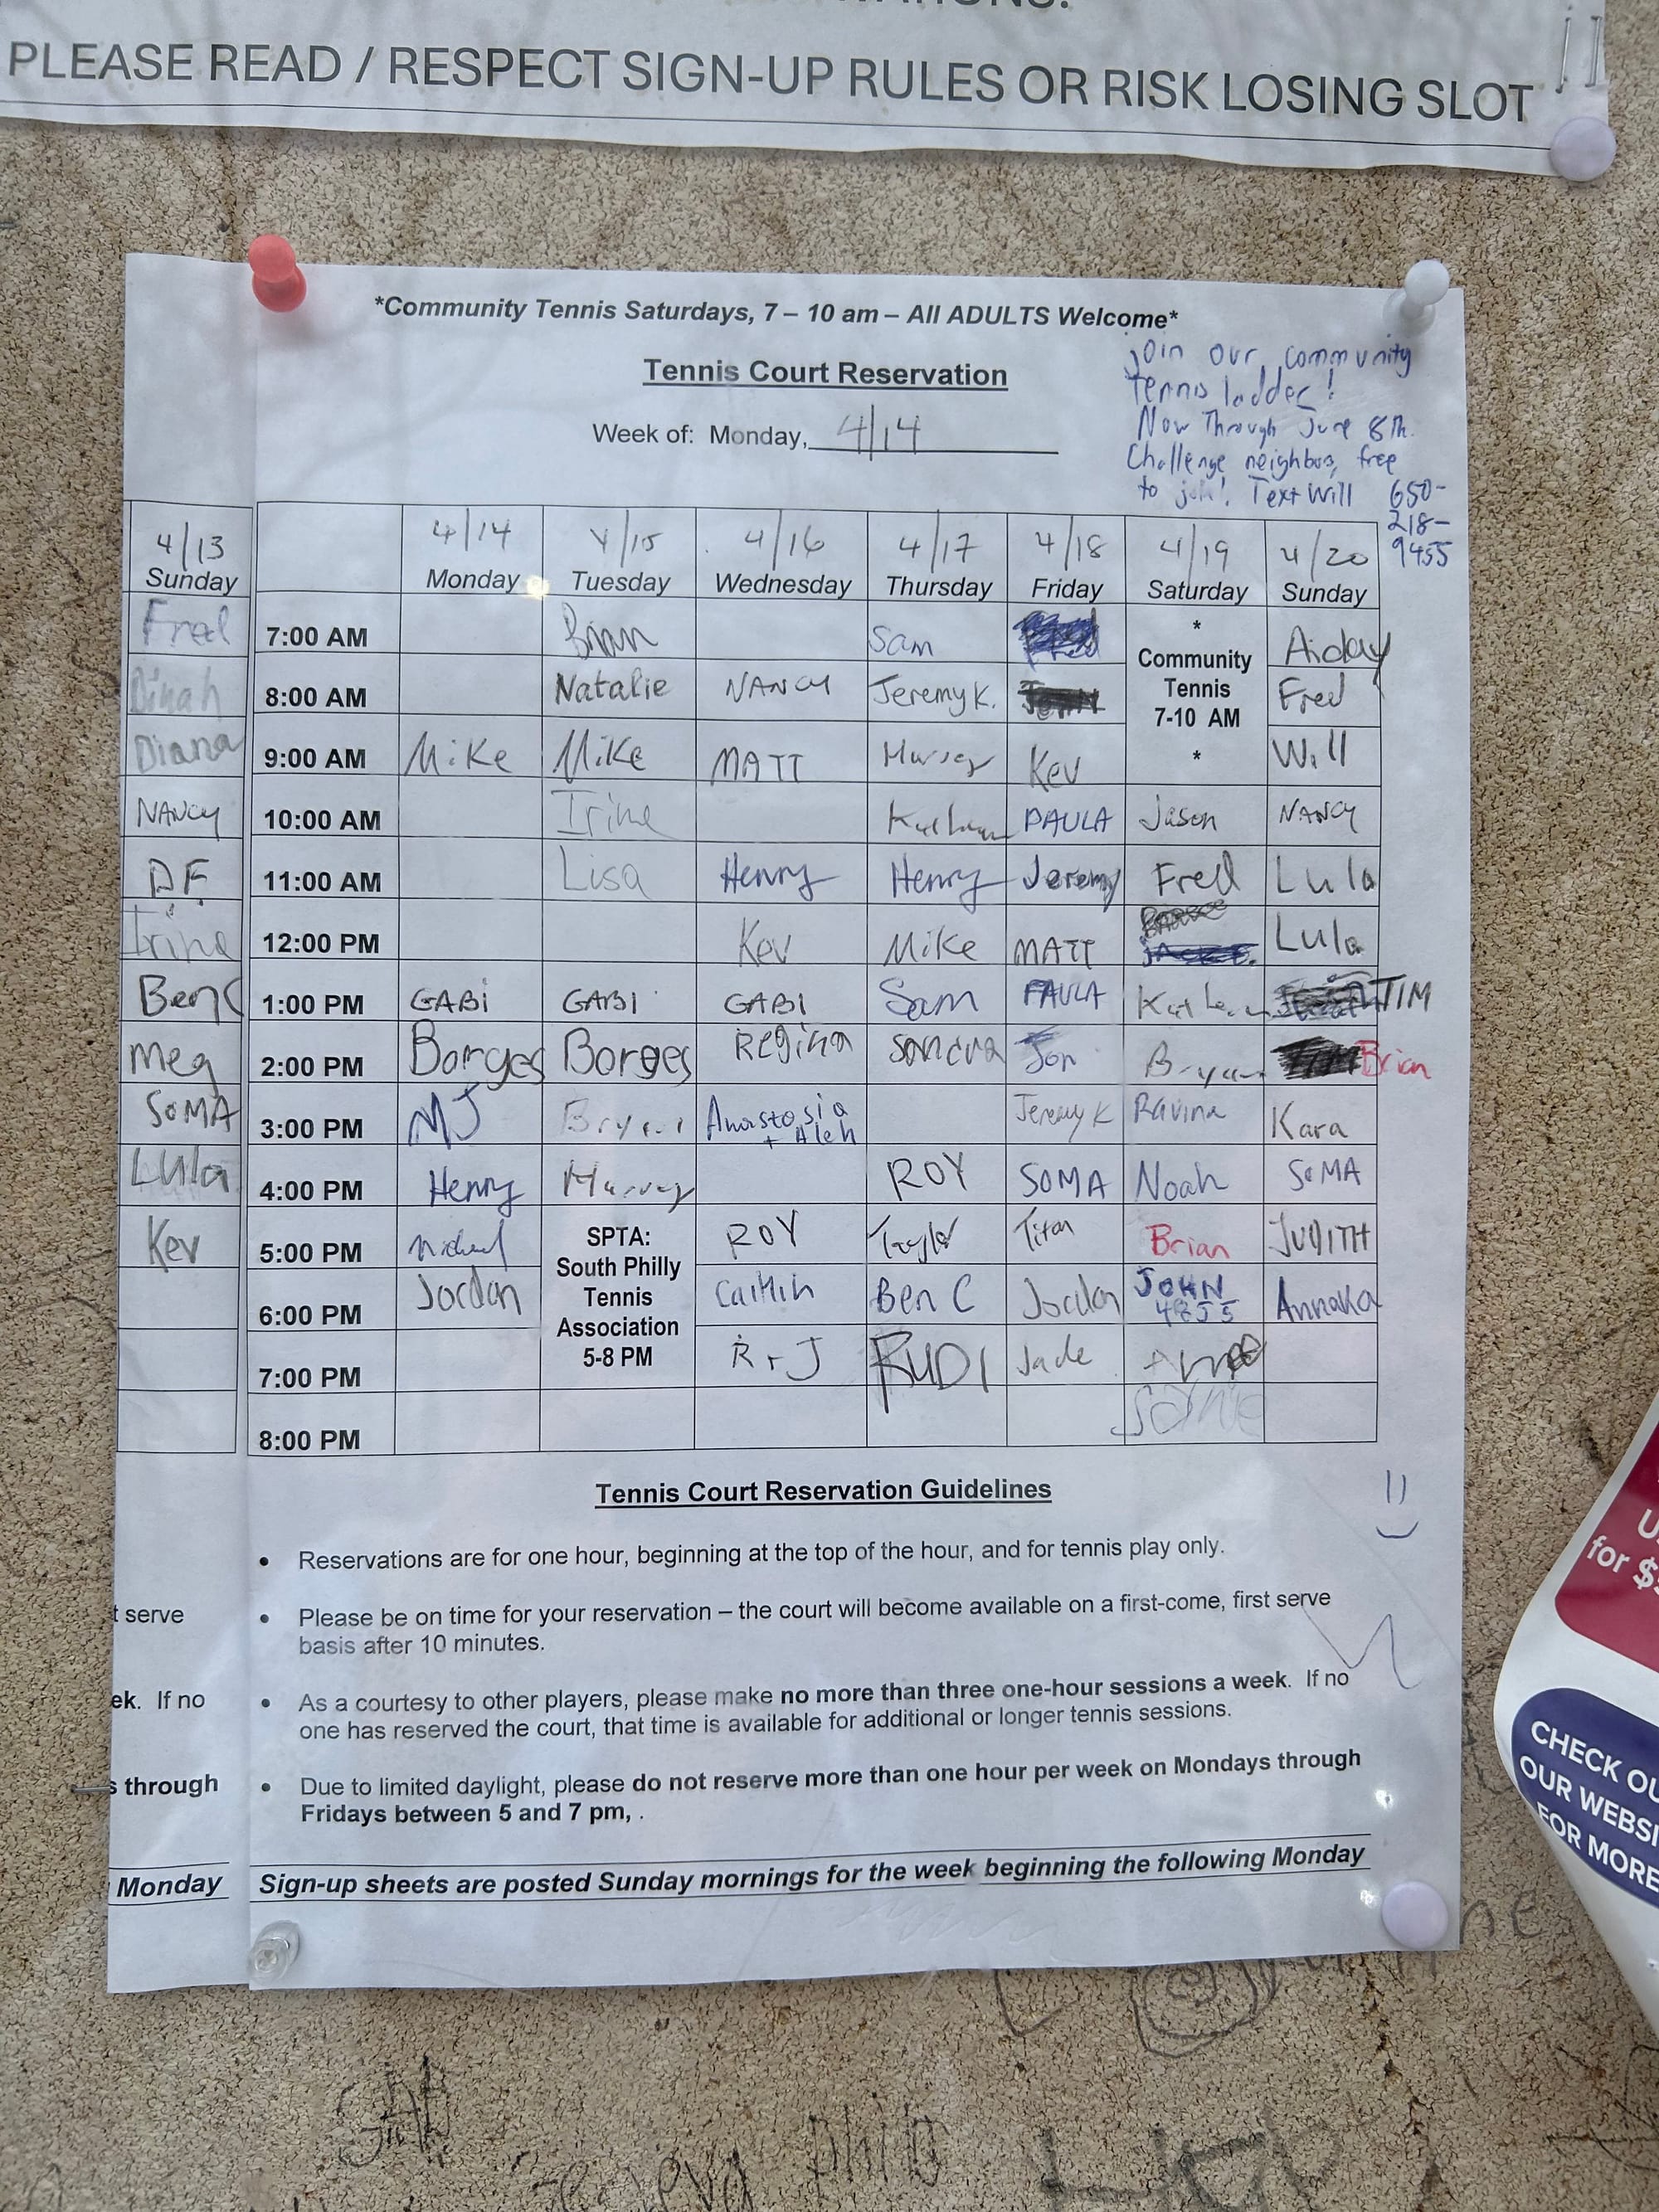 PLEASE READ / RESPECT SIGN-UP RULES OR RISK LOSING SLOT
*Community Tennis Saturdays, 7 – 10 am – All ADULTS Welcome*
Tennis Court Reservation
Week of: Monday, 4/14
Join our community
Tennis ladder!
Now Through June 8th.
Challenge neighbors, free
to join! Text Will 650-
218-
9455
4/13 4/14 4/15 4/16 4/17 4/18 4/19 4/20
Sunday Monday Tuesday Wednesday Thursday Friday Saturday Sunday
Fred 7:00 AM Brian Sam Fred * Aiday
Community
Tennis
7-10 AM
*
Dinah 8:00 AM Natalie NANCY Jeremy K. Fred
Diana 9:00 AM Mike Mike MATT Kev Will
NANCY 10:00 AM Irina PAULA Jason NANCY
DF 11:00 AM Lisa Henry Henry Jeremy Fred Lula
Irina 12:00 PM Kev Mike MATT Lula
Ben C 1:00 PM GABi GABI GABI Sam PAULA TIM
Meg 2:00 PM Borges Borges Regina Jon Bryan Brian
SOMA 3:00 PM MJ Anastasia Jeremy K Ravina Kara
Lula 4:00 PM Henry Harvey ROY SOMA Noah SOMA
Kev 5:00 PM Michael ROY Taylor Titan Brian JUDITH
SPTA:
South Philly
Tennis
Association
5-8 PM
6:00 PM Jordan Caitlin Ben C Jordan JOHN Annaka
7:00 PM R + J RUDI Jade
8:00 PM
Tennis Court Reservation Guidelines
• Reservations are for one hour, beginning at the top of the hour, and for tennis play only.
t serve • Please be on time for your reservation – the court will become available on a first-come, first serve
basis after 10 minutes.
ek. If no • As a courtesy to other players, please make no more than three one-hour sessions a week. If no
one has reserved the court, that time is available for additional or longer tennis sessions.
s through • Due to limited daylight, please do not reserve more than one hour per week on Mondays through
Fridays between 5 and 7 pm, .
Monday Sign-up sheets are posted Sunday mornings for the week beginning the following Monday
for $
CHECK OU
OUR WEBSI
FOR MORE